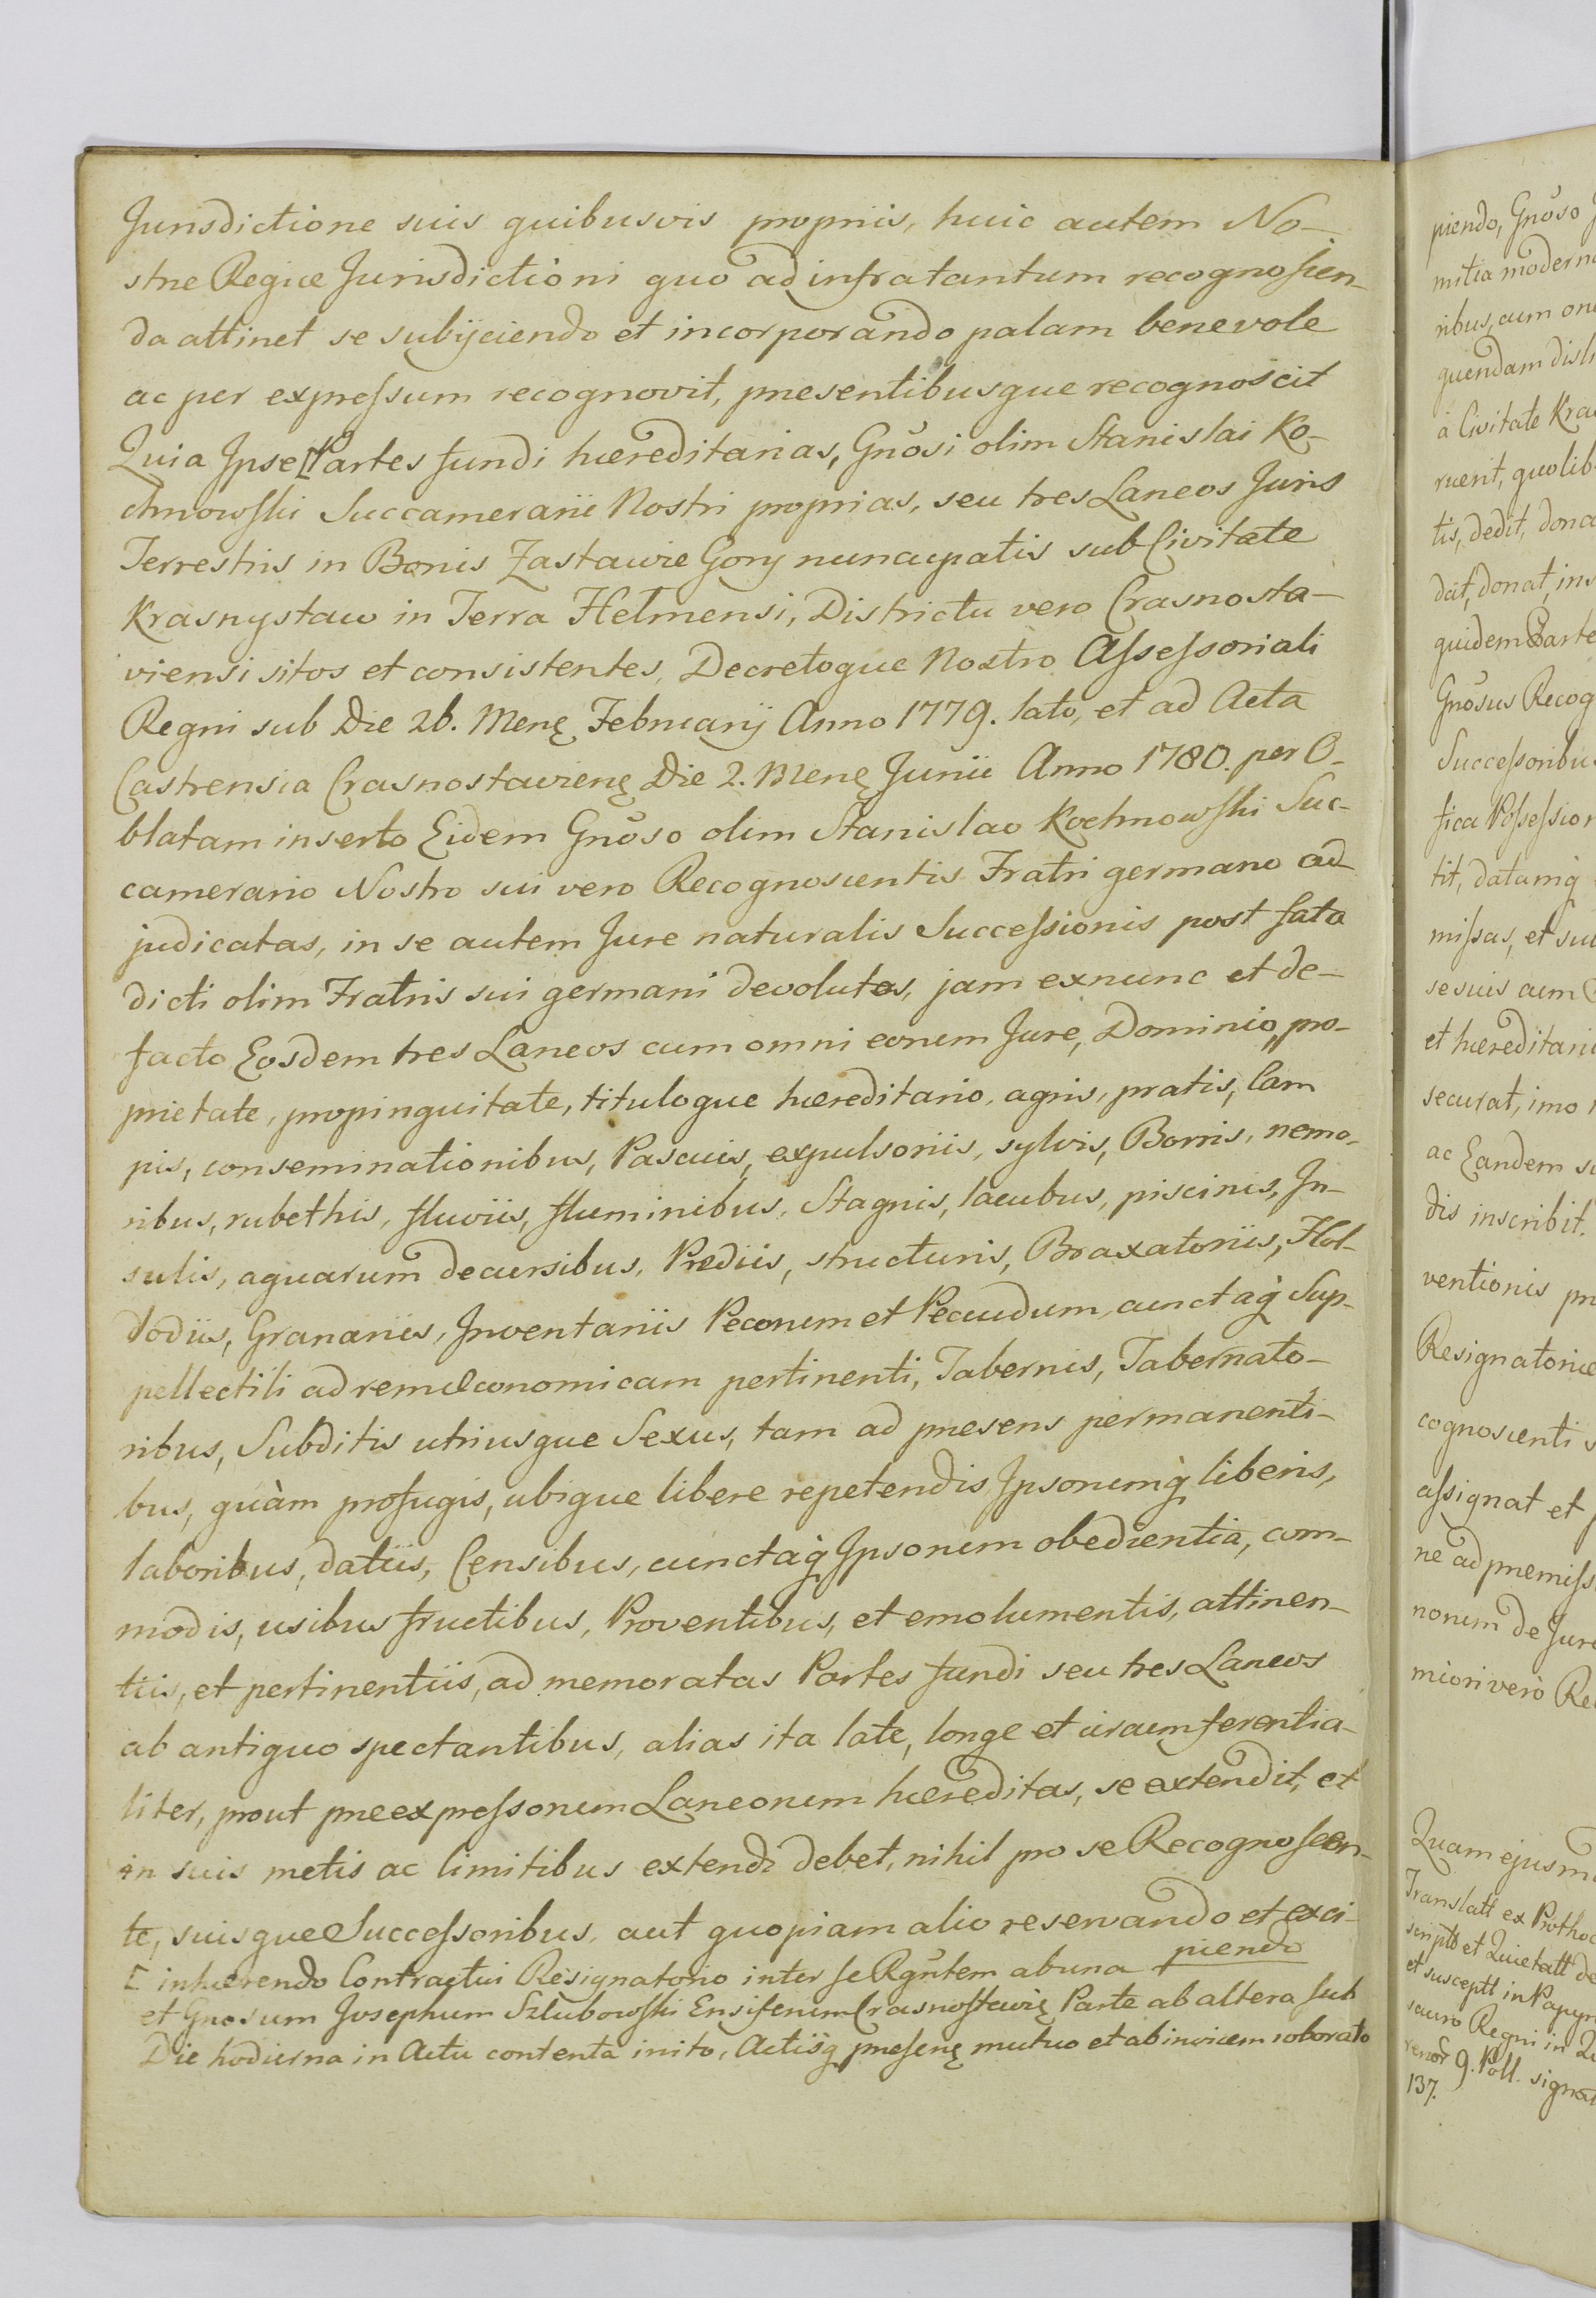 Jurisdictione suis quibusvis propriis, huic autem No-
stræ Regiæ Jurisdictioni quo ad infratantum recognoscen-
da attinet se subijciendo et incorporando palam benevole
ac per expressum recognovit, præsentibusque recognoscit
Quia Ipse [Partes fundi hæreditarias, Gnosi olim Stanislai Ko-
chnowski Succamerarii Nostri proprias, seu tres Laneos Juris
Terrestris in Bonis Zastawie Gory nuncupatis sub Civitate
Krasnystaw in Terra Helmensi, Districtu vero Crasnosta-
viensi sitos et consistentes, Decretoque Nostro Assessoriali
Regni sub Die 26. Mensę Februarij Anno 1779. lato, et ad Acta
Castrensia Crasnostavienę Die 2. Menę Junii Anno 1780. per O-
blatam inserto Eidem Gnoso olim Stanislao Kochnowski Suc-
camerario Nostro sui vero Recognoscentis Fratri germano ad
judicatas, in se autem Jure naturalis Successionis post fata
dicti olim Fratris sui germani devolutas, jam exnunc et de-
facto Eosdem tres Laneos cum omni eorum Jure, Dominio, pro-
prietate, propinquitate, tituloque hæreditario, agris, pratis, Cam
pis, conseminationibus, Pascuis, expulsoriis, sylvis, Borris, nemo-
ribus, rubethis, fluviis, fluminibus, Stagnis, lacubus, piscinis, In-
sulis, aquarum decursibus, Prædiis, structuris, Braxatoriis, Hol-
dodiis, Granariis, Inventariis Pecorum et Pecudum, cunctaq Sup-
pellectili ad rem œconomicam pertinenti, Tabernis, Tabernato-
ribus, Subditis utriusque Sexus, tam ad præsens permanenti-
bus, quàm profugis, ubique libere repetendis Ipsorumq liberis,
laboribus, datiis, Censibus, cunctaq Ipsorum obedientia, com-
modis, usibus fructibus, Proventibus, et emolumentis, attinen-
tiis, et pertinentiis, ad memoratas Partes fundi seu tres Laneos
ab antiquo spectantibus, alias ita late, longe et circumferentia-
liter, prout præexpressorum Laneorum hæreditas, se extendit, et
in suis metis ac limitibus extendi debet, nihil pro se Recognoscen-
te, suisque Successoribus, aut quopiam alio reservando et exci-
piendo
[ inhærendo Contractui Resignatorio inter se Rgntem ab una
et Gnosum Josephum Szlubowski Ensiferum Crasnostavię Parte ab altera sub
Die hodierna in Actu contenta inito, Actisq præsenę mutuo et abinvicem roborato
piendo, Gnoso
mitia moderno
ribus, cum
quendam
à Civitate
ruerit,
tis, dedit,
dat, donat,
quidem
Gnosus
fica
tit, datamq
missas, et
se suis cum
et
securat, imo
ac Eandem
dis inscribit.
ventionis
cognoscenti
assignat et
ne ad
norum de
miori verò
Quam
Translatt ex
et Quietatt
et susceptt in
Regni in
9. Poll.
137.